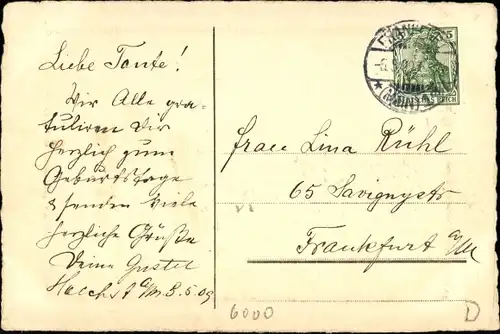 Liebe Tante!
Wir Alle gra-
tuliren Dir
herzlich zum
Geburtstage
& senden viele
herzliche Grüße
Deine Gustel
Hoechst a/M 8.5.09
Frau Lina Rühl
65 Savignystr.
Frankfurt a/M
FRANKFURT
(MAIN)
5
6000
D